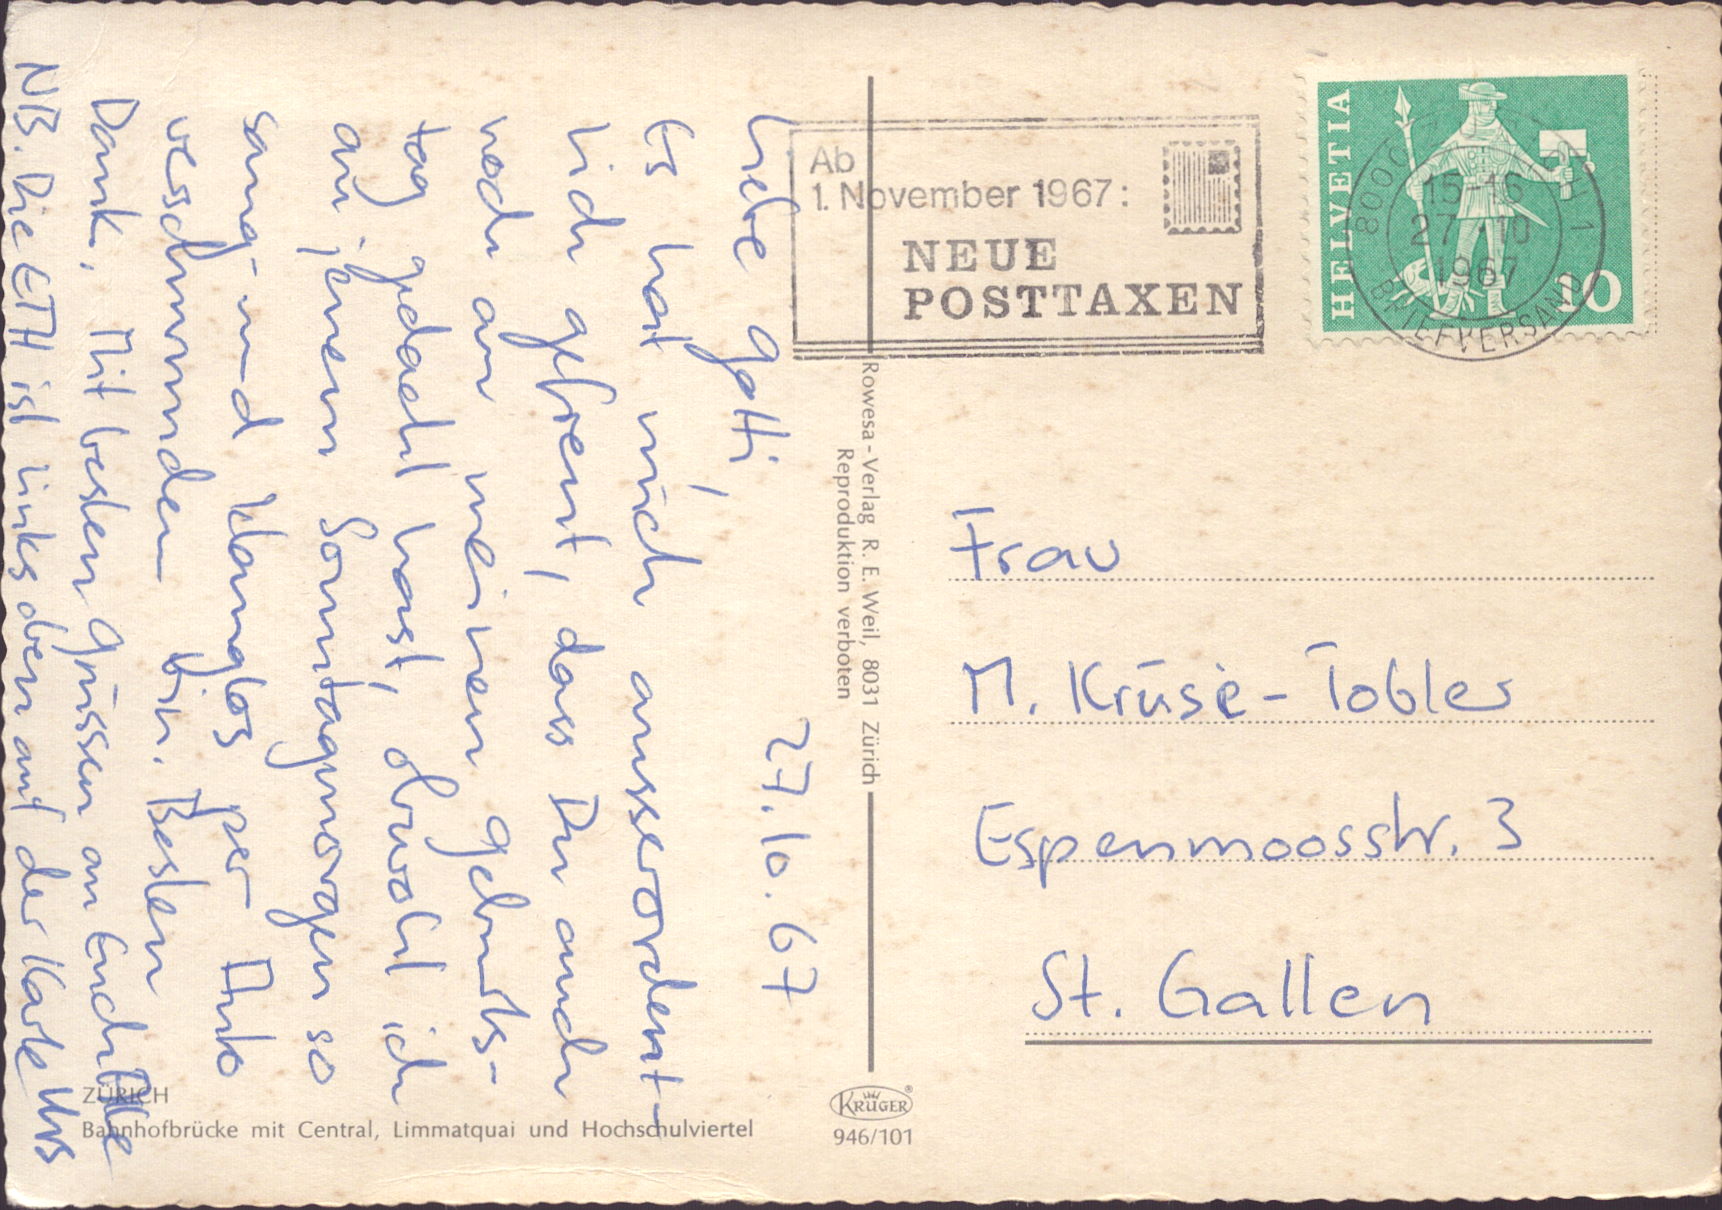 27.10.67
Liebe Gotti,
Es hat mich ausserordent-
lich gefreut, dass Du auch
noch an meinen Geburts-
tag gedacht hast, obwohl ich
an jenem Sonntagmorgen so
sang- und klanglos per Auto
verschwunden bin. Besten
Dank. Mit besten Grüssen an Euch alle
NB. Die ETH ist links oben auf der Karte Urs
Ab
1. November 1967:
NEUE
POSTTAXEN
HELVETIA
10
8000
H 1
15-16
27.10
1967
BRIEFVERSAND
Rowesa-Verlag R. E. Weil, 8031 Zürich
Reproduktion verboten
Frau
M. Krüsi-Tobler
Espenmoosstr. 3
St. Gallen
ZÜRICH
Bahnhofbrücke mit Central, Limmatquai und Hochschulviertel
KRÜGER®
946/101